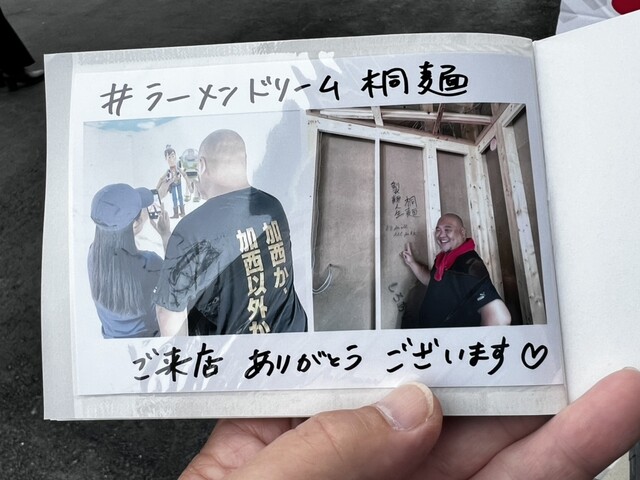 #ラーメンドリーム 桐麺
加西か
加西以外か
桐麺
ご来店 ありがとう ございます♡